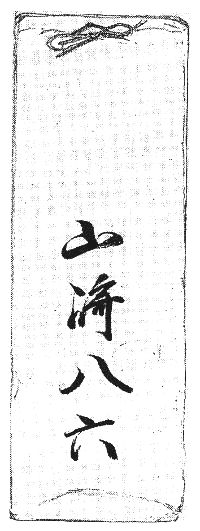 山崎八六